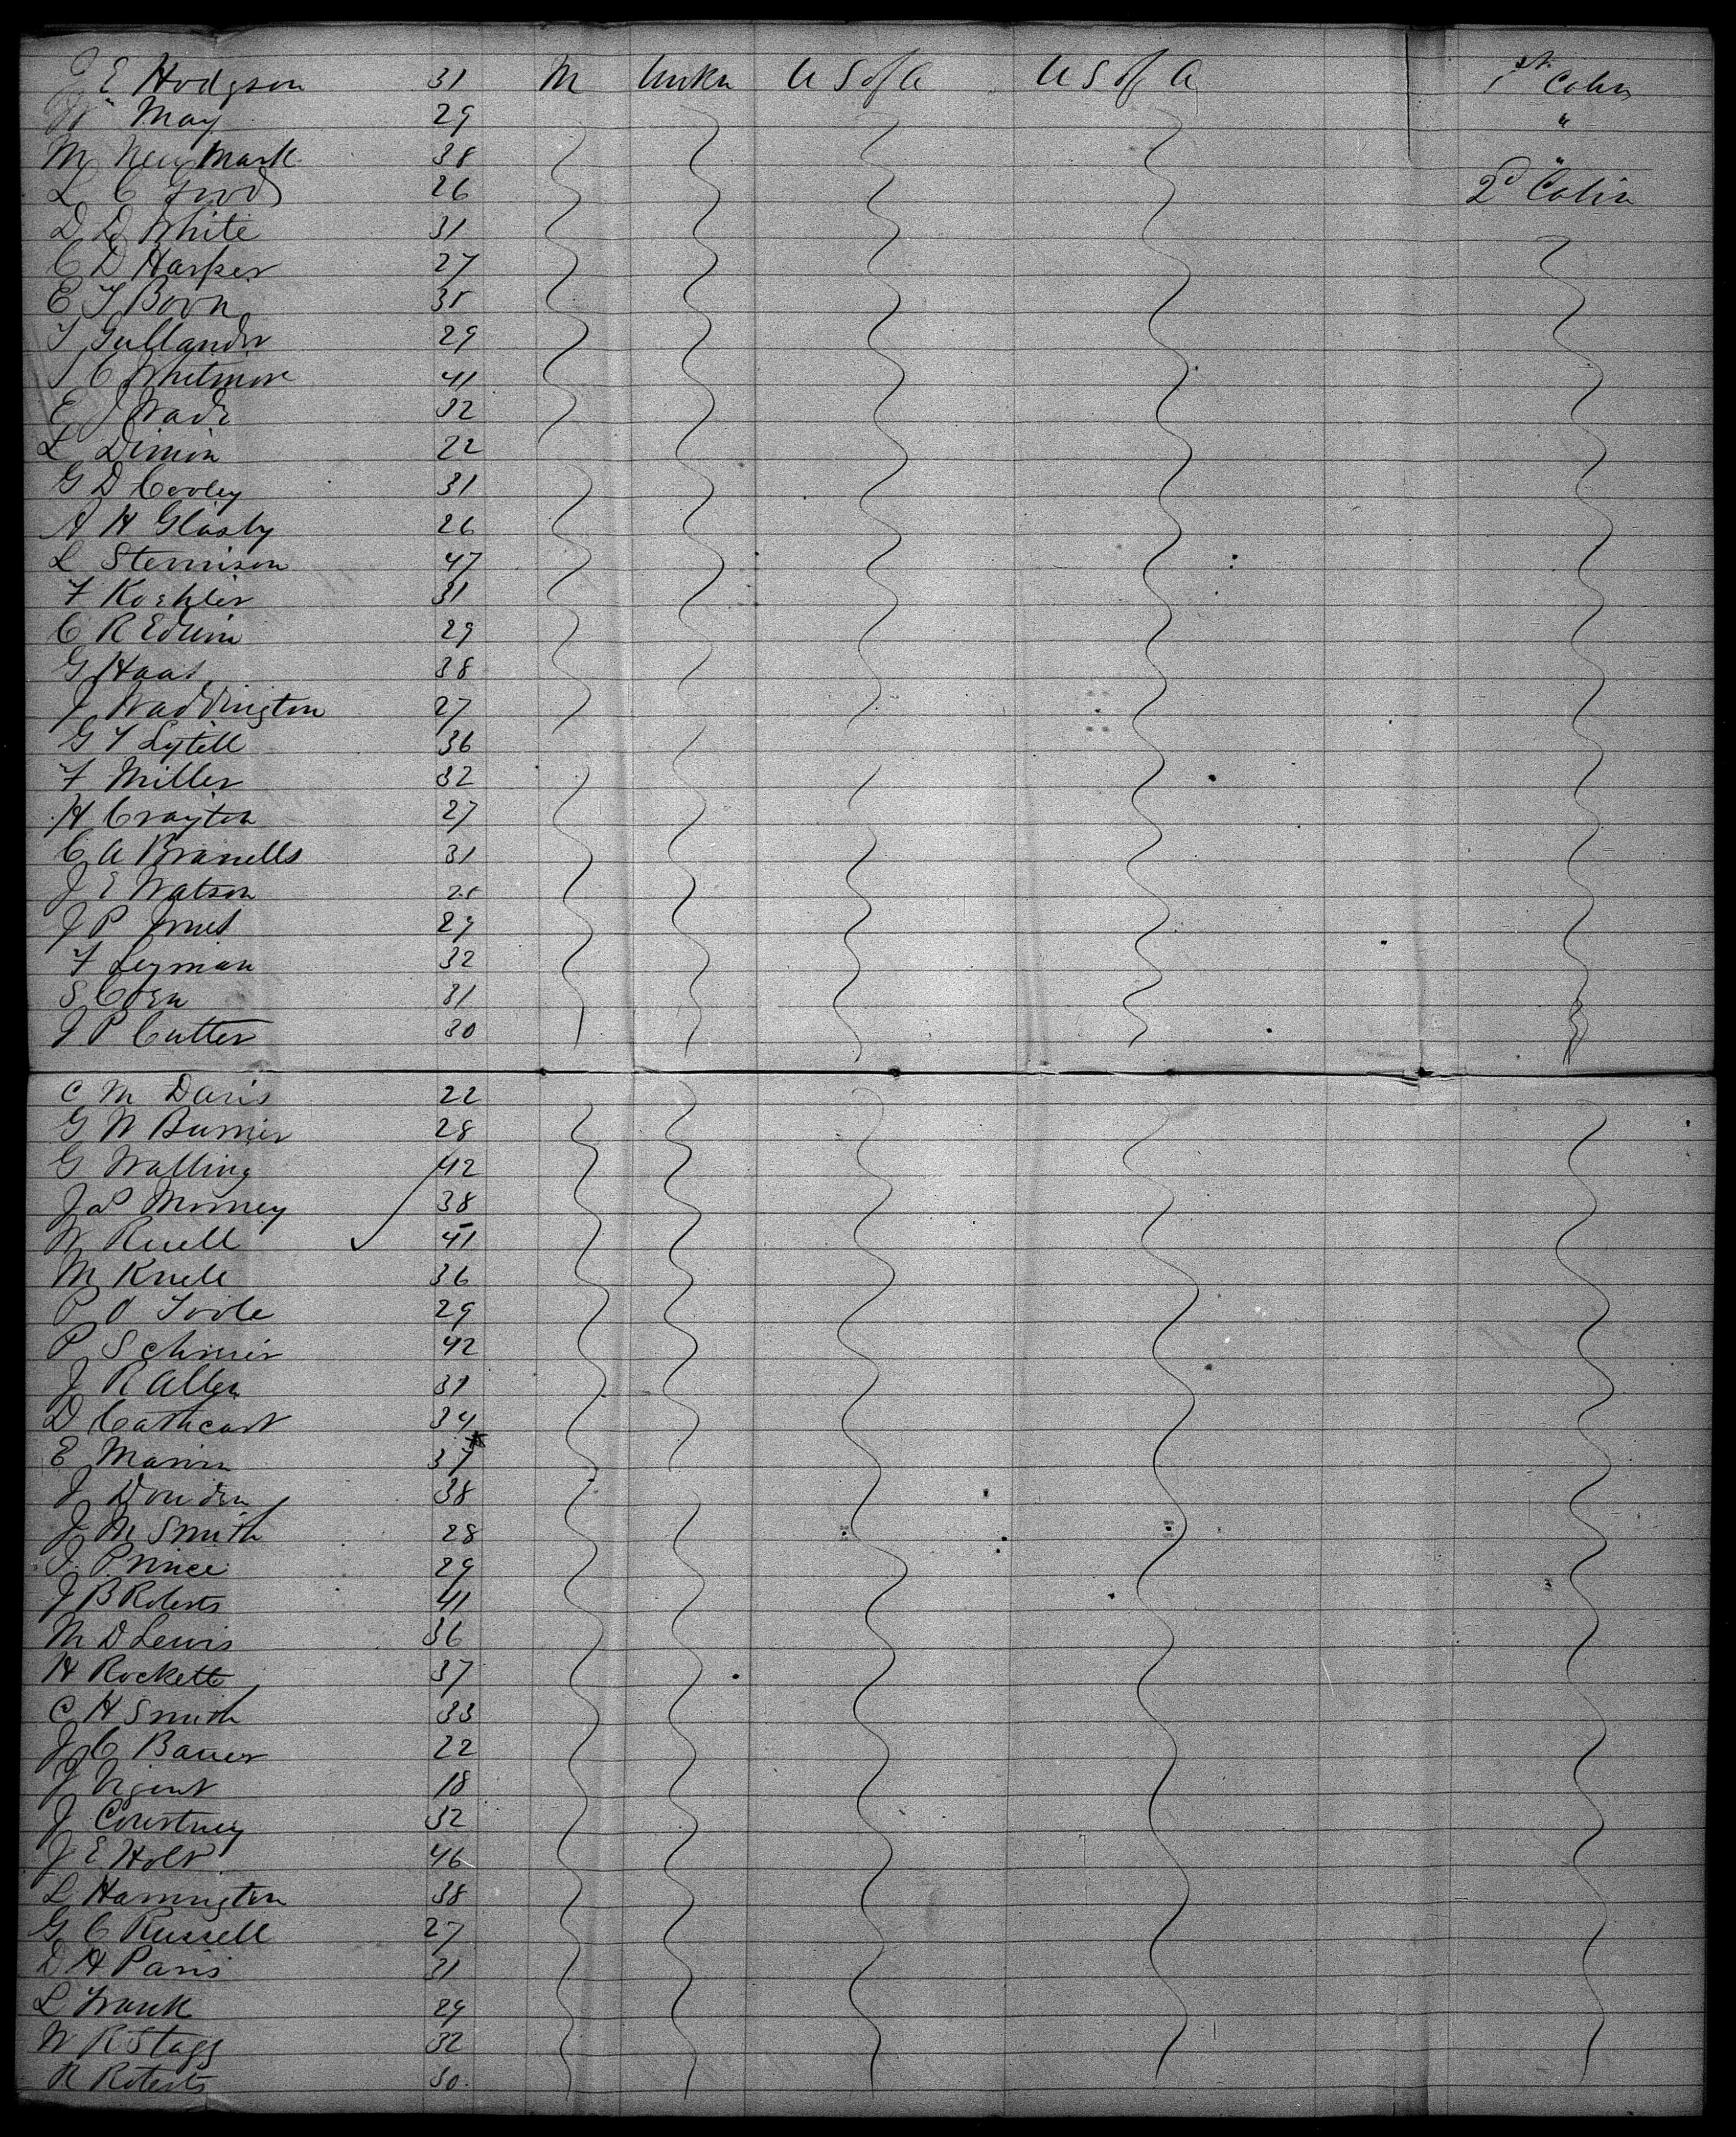 J E Hodgson 31 M Unkn U S of A U S of A 1st Cabin
Wm May 29 "
M New Mark 38 "
L C Good 26 2d Cabin
D D White 31
C D Harper 27
E T Boon 35
T Gullander 29
T C Whitmore 41
E J Wade 32
L Dimon 22
G D Cooley 31
A H Glasby 26
L Stennison 47
F Koehler 31
C R Edwin 29
G Haas 38
J Waddington 27
G T Lytell 36
F Miller 32
H Crayton 27
C A Branells 31
J E Watson 25
J P Jones 29
F Leyman 32
S Coen 31
J P Cutter 30
C M Davis 22
G W Burnier 28
G Walling 42
J P Morney 38
W Ruell 41
M Knell 36
P O Toole 29
P Schrier 42
J R Allen 31
D Cathcart 34
E Mann 37
J Douden 38
J M Smith 28
J Prince 29
J B Roberts 41
M D Lewis 36
H Rockett 37
C H Smith 33
J C Bauer 22
J Vigent 18
J Courtney 32
J E Holt 46
L Hannington 38
G C Russell 27
D H Paris 31
L Frank 29
W R Stagg 32
R Roberts 30